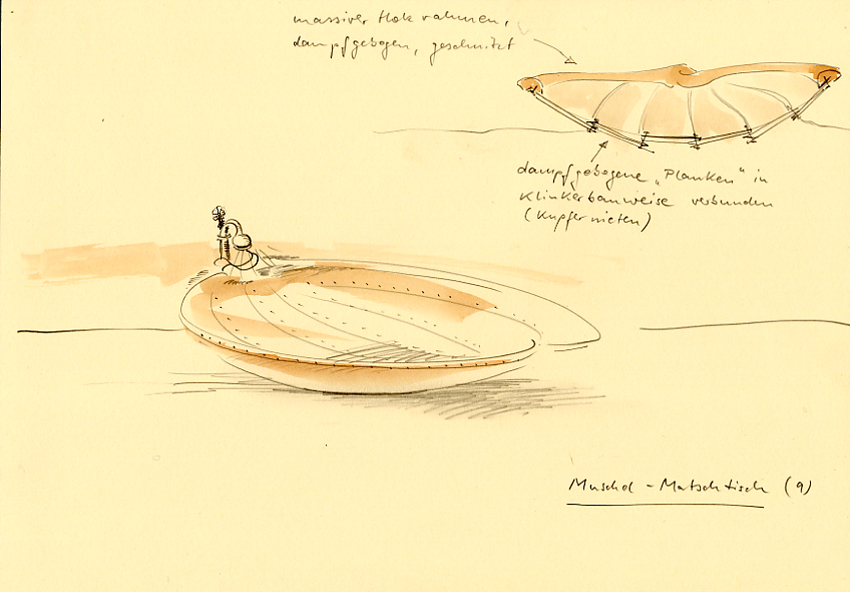 massiver Holzrahmen,
dampfgebogen, geschnitzt
dampfgebogene „Planken" in
Klinkerbauweise verbunden
(Kupfernieten)
Muschel-Matschtisch (9)